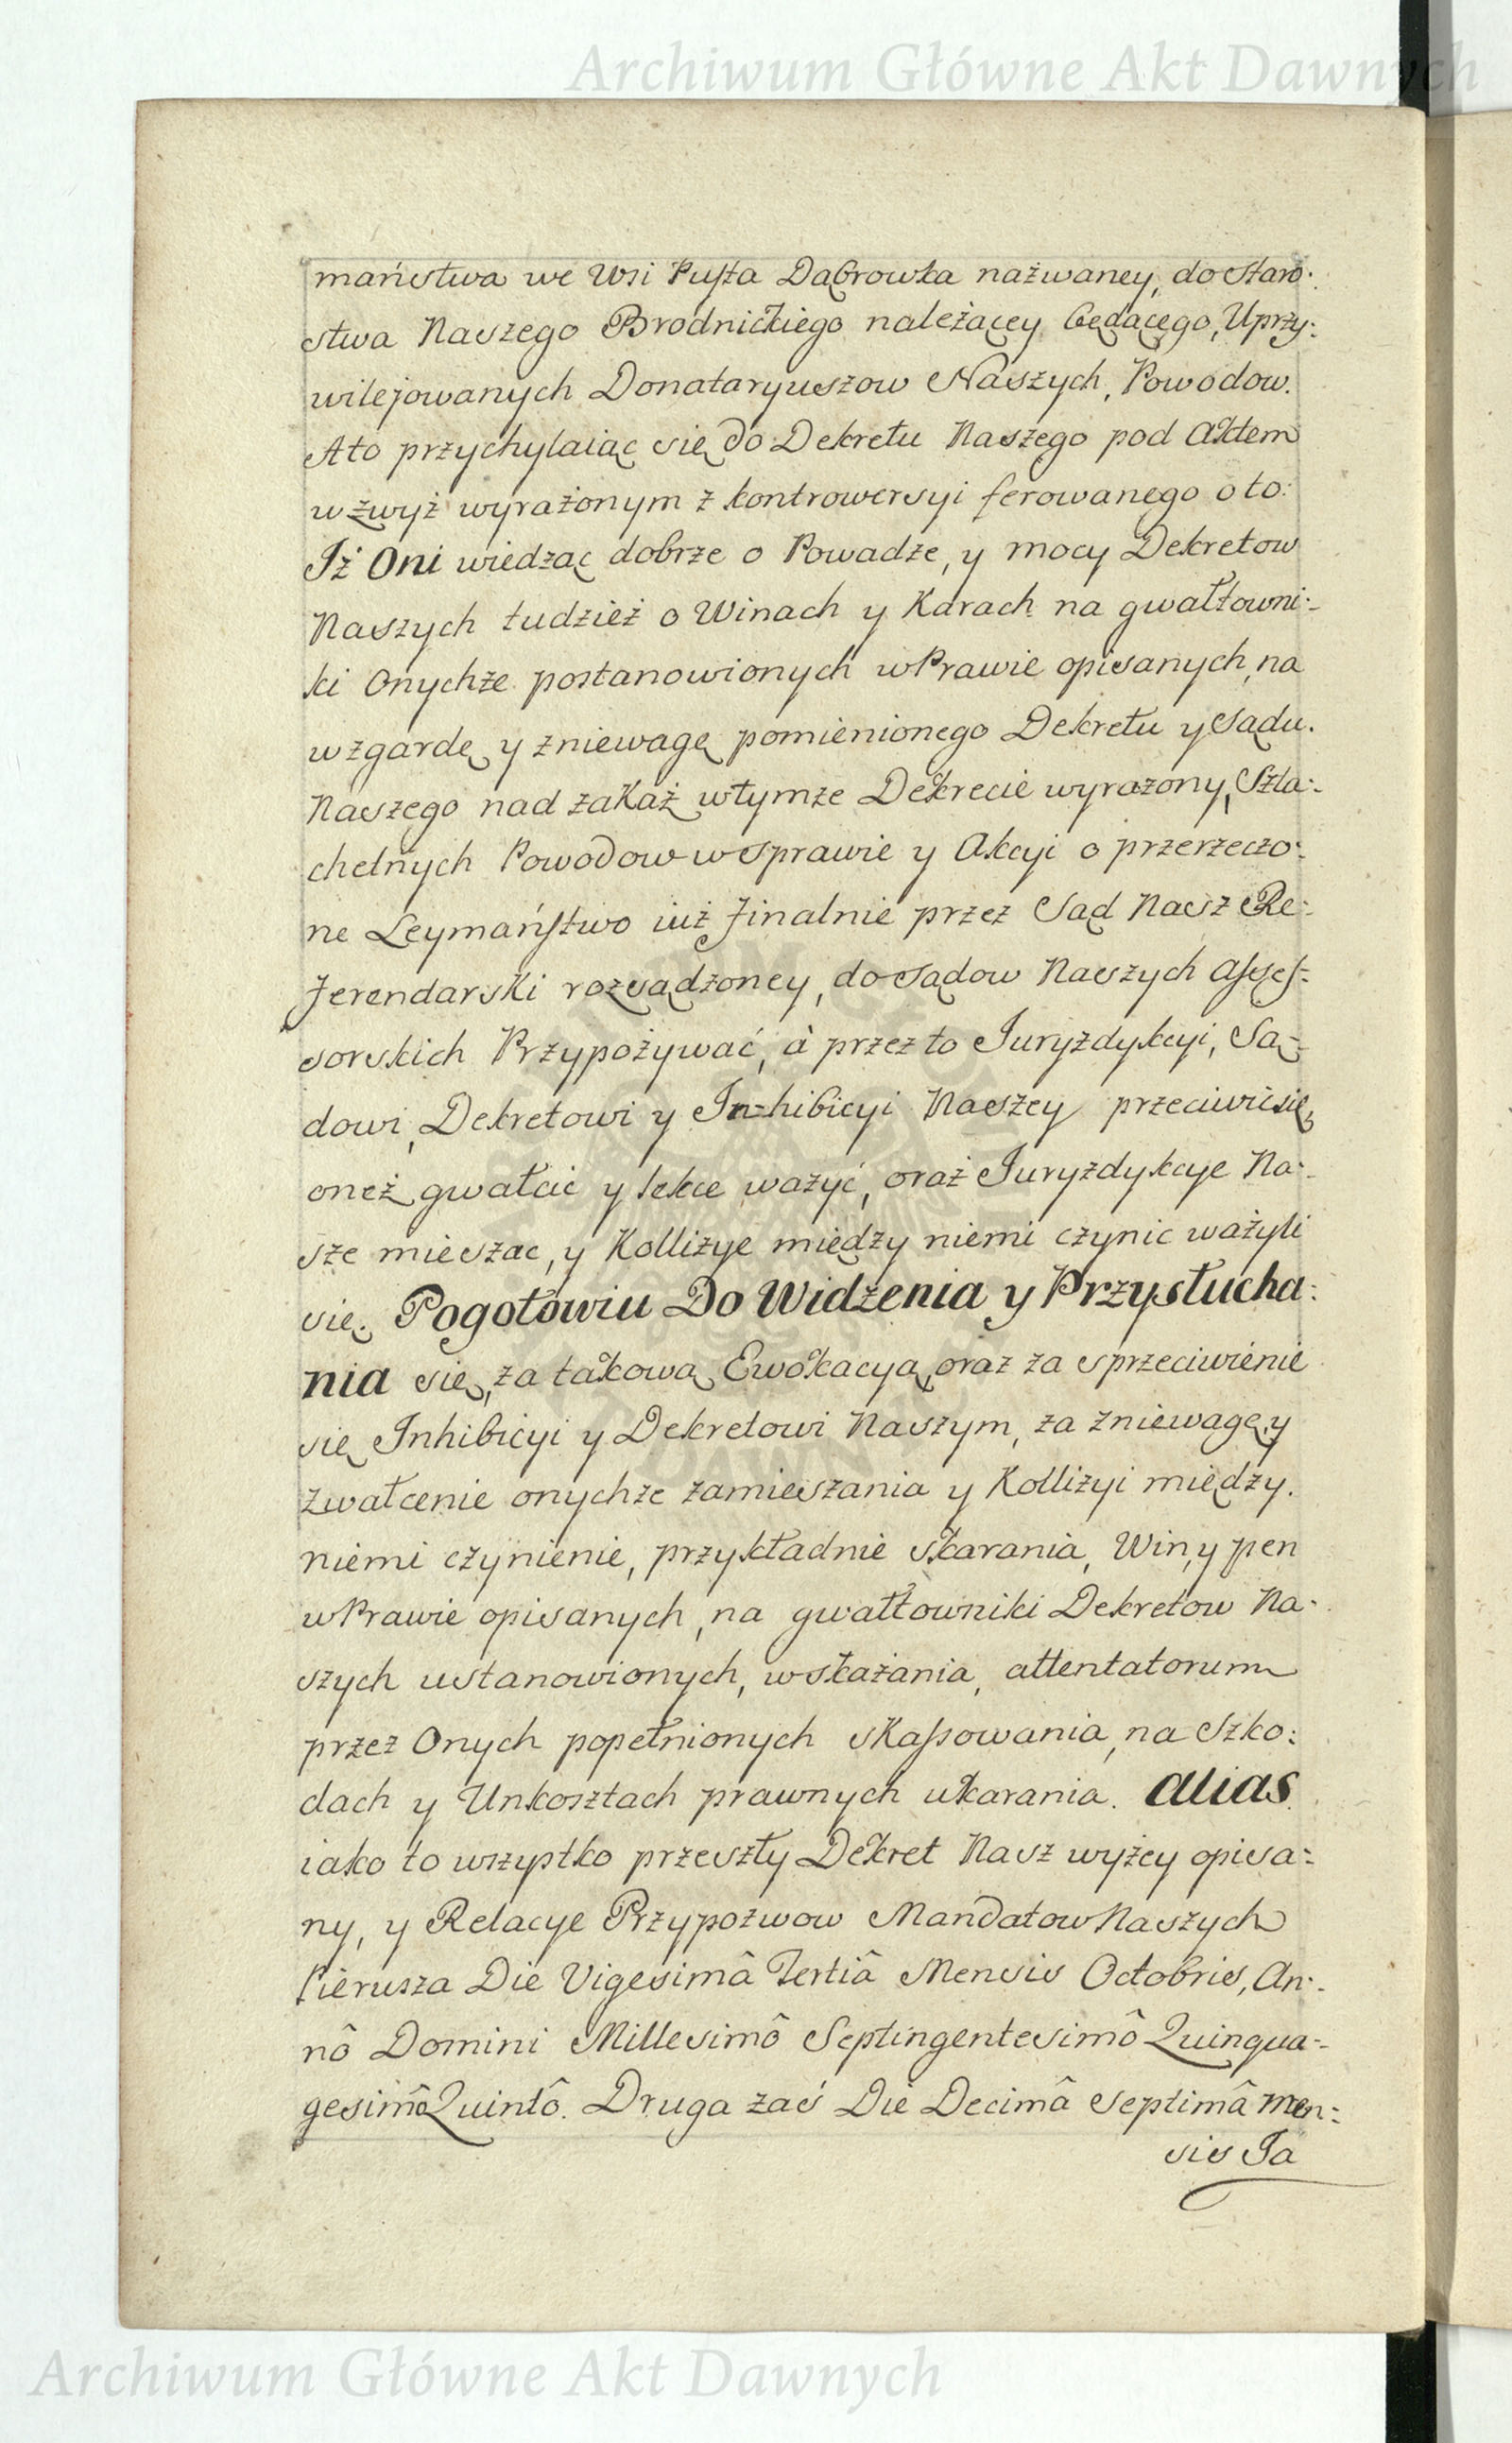 Archiwum Główne Akt Dawnych
maństwa we Wsi Pusta Dąbrowka nażwaney, do Staro:
stwa Naszego Brodnickiego należącey będącego, Uprzy:
wilejowanych Donataryuszow Naszych, Powodow.
A to przychylaiąc się do Dekretu Naszego pod Aktem
wzwyż wyrażonym z kontrowersyi ferowanego o to:
Iż Oni wiedząc dobrze o Powadze, y mocy Dekretow
Naszych tudzież o Winach y Karach na gwałtowni:
ki Onychże postanowionych w Prawie opisanych, na
wzgardę y zniewagę pomienionego Dekretu y Sądu.
Naszego nad zakaz w tymże Dekrecie wyrażony, Szla:
chetnych Powodow w sprawie y Akcyi o przerzeczo:
ne Leymaństwo iuż finalnie przez Sąd Nasz Re:
ferendarski rozsądzoney, do sądow Naszych Asses:
sorskich Przypozywać, à przez to Juryzdykcyi, Są:
dowi, Dekretowi y Inhibicyi Naszey przeciwić się,
oneż gwałcić y lekce ważyć, oraz Juryzdykcye Na:
sze mieszac, y Kollizye między niemi czynic ważyli
się. Pogotowiu Do Widzenia y Przysłucha:
nia się, za takową Ewokacyą, oraz za sprzeciwienie
się Inhibicyi y Dekretowi Naszym, za zniewagę, y
zwałcenie onychże zamieszania y Kollizyi między.
niemi czynienie, przykładnie skarania, Win, y pen
w Prawie opisanych, na gwałtowniki Dekretow Na:
szych ustanowionych, wskazania, attentatorum
przez Onych popełnionych skassowania, na Szko:
dach y Unkosztach prawnych ukarania. Alias
iako to wszystko przeszły Dekret Nasz wyżey opisa:
ny, y Relacye Przypozwow Mandatow Naszych
Pierusza Die Vigesimâ Tertiâ Mensis Octobris, An:
nô Domini Millesimô Septingentesimô Quinqua:
gesimô Quintô. Druga zaś Die Decimâ Septimâ Men:
sis Ja
Archiwum Główne Akt Dawnych